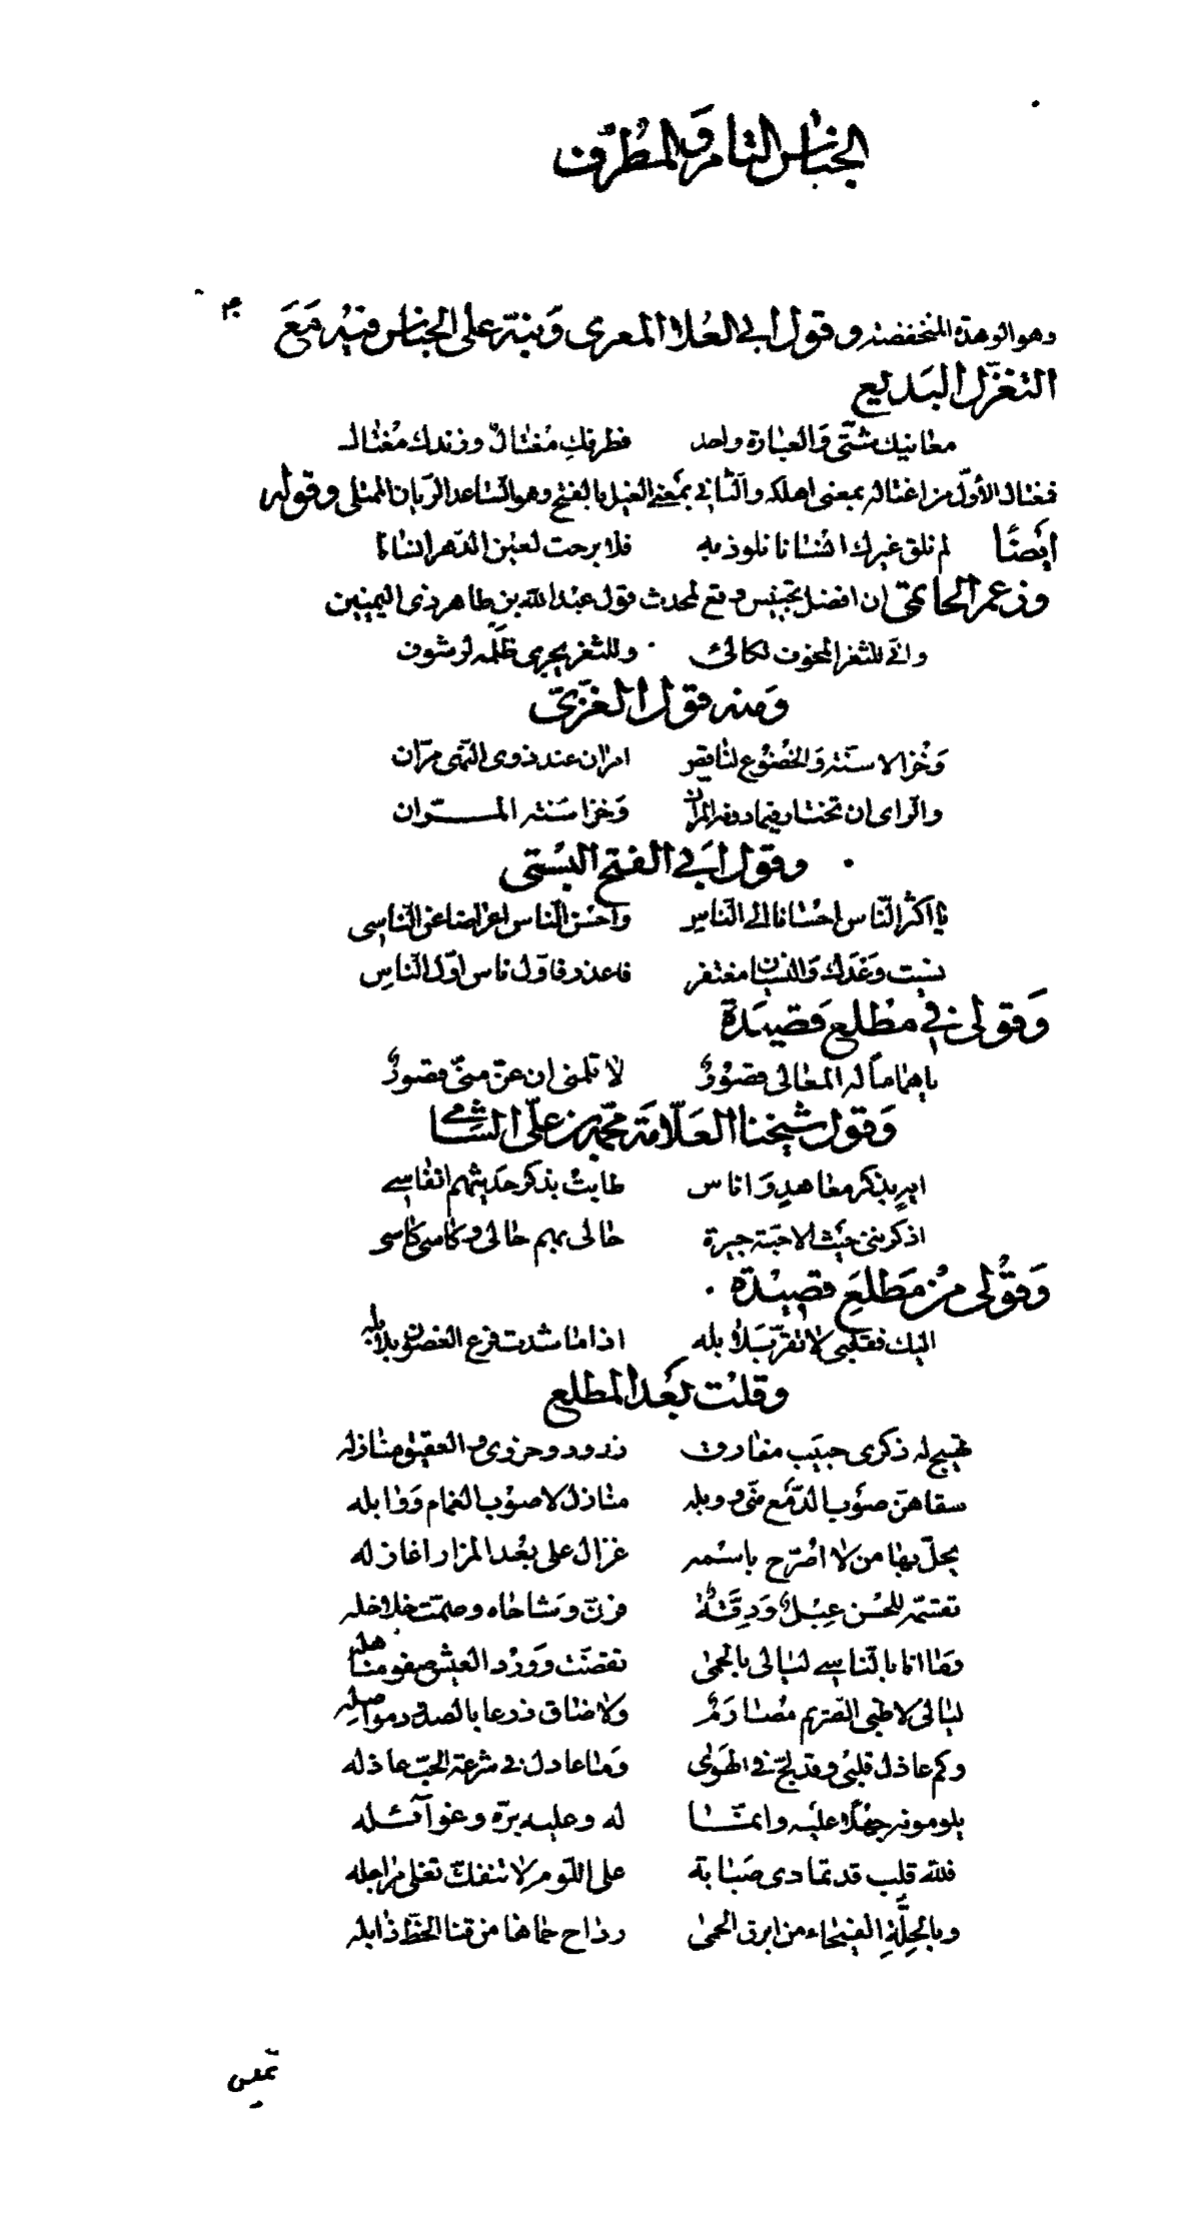 الجناس التام والمطرف
وهو الوهدة المنخفضة وقول ابي العلاء المعري وَنبّه على الجناس فيه مَعَ
التغزّل البَديع
معانيك شتّى وَالعبارة واحد فطرفكِ مُغتالٌ وزندك مُغتال
فمغتال الأوّل من اغتاله بمعنى اهلكه والثاني بمَعنى الغيل بالفتح وهو السّاعد الرّيان الممتلي وقوله
ايضًا لم نلق غيرك انسانا نلوذ به فلا برحت لعين الدّهر انسانا
وزعم الحاتمي ان افضل تجنيس وقع لمحدث قول عبد الله بن طاهر ذي اليمينين
واني للثغر المخوف لكالئ وللثغر يجري ظَلمه لرشوف
وَمنه قول الغزّيّ
وَخْز الاسنّة وَالخُضُوع لناقصٍ امران عند ذوي النّهى مرّان
والرّاى ان تختار فيما دونه المرّان وَخز اسَنّة المــرّان
وقول ابَي الفتح البُستي
يا اكثر النّاس احسَانا الى النّاسِ وَاحسَن النّاس اعراضا عن النّاسي
نسيت وعَدك وَالنسيان مغتفر فاعذر فاوّل ناس اوّل النّاسِ
وَقولي في مطلع قصيدَة
ياهماماً له المعالي قصُورٌ لا تلمني ان عنّ منّي قصورٌ
وَقول شيخنا العَلّامَة محمّد بن علي الشّامي
ايهٍ بذكر معاهدٍ وَاناس طابتْ بذكر حَديثهم انفاسي
اذكرتني حيث الاحبّة جيرة حالي بهم حالي وكاسي كاسي
وَقولي من مَطلعِ قصيدَة
اليك فقلبي لا تقرّ بَلابله اذا ما شدت فرع الغصون بلابله
وقلت بَعد المطلع
تهيج له ذكرى حبيَب مفارق زرود وحزوى والعقيق منازله
سقاهنّ صوْب الدّمع منّي ووبله منازل لا صوْب الغمام وَوابله
يحلّ بها من لا اصَرّح باسمه غزال على بعْد المزار اغازله
تقسّم للحُسن عِبْلٌ وَدِقَّةٌ فرنّ وشاحاه وصمتت خلاخله
وَما انا بالنّاسي ليالي بالحمى تقضّت ووِرْد العيش صفو مناهله
ليالي لا ظبي الصّريم مُصَارمٌ ولا ضاق ذرعا بالصدود مواصله
وكم عاذل قلبي وقد لجّ في الهَوى وَما عادل في شرعة الحبّ عاذله
يلومونه جهْلا عليه وانّمَــا له وعليه برّه وغوآئله
فلله قلب قد تمادى صَبابة على اللّوم لا تنفكّ تغلي مراجله
وبالحِلّةِ الفيحاء من ابرق الحمى رداح حماها من قنا الخطّ ذابله
تميس